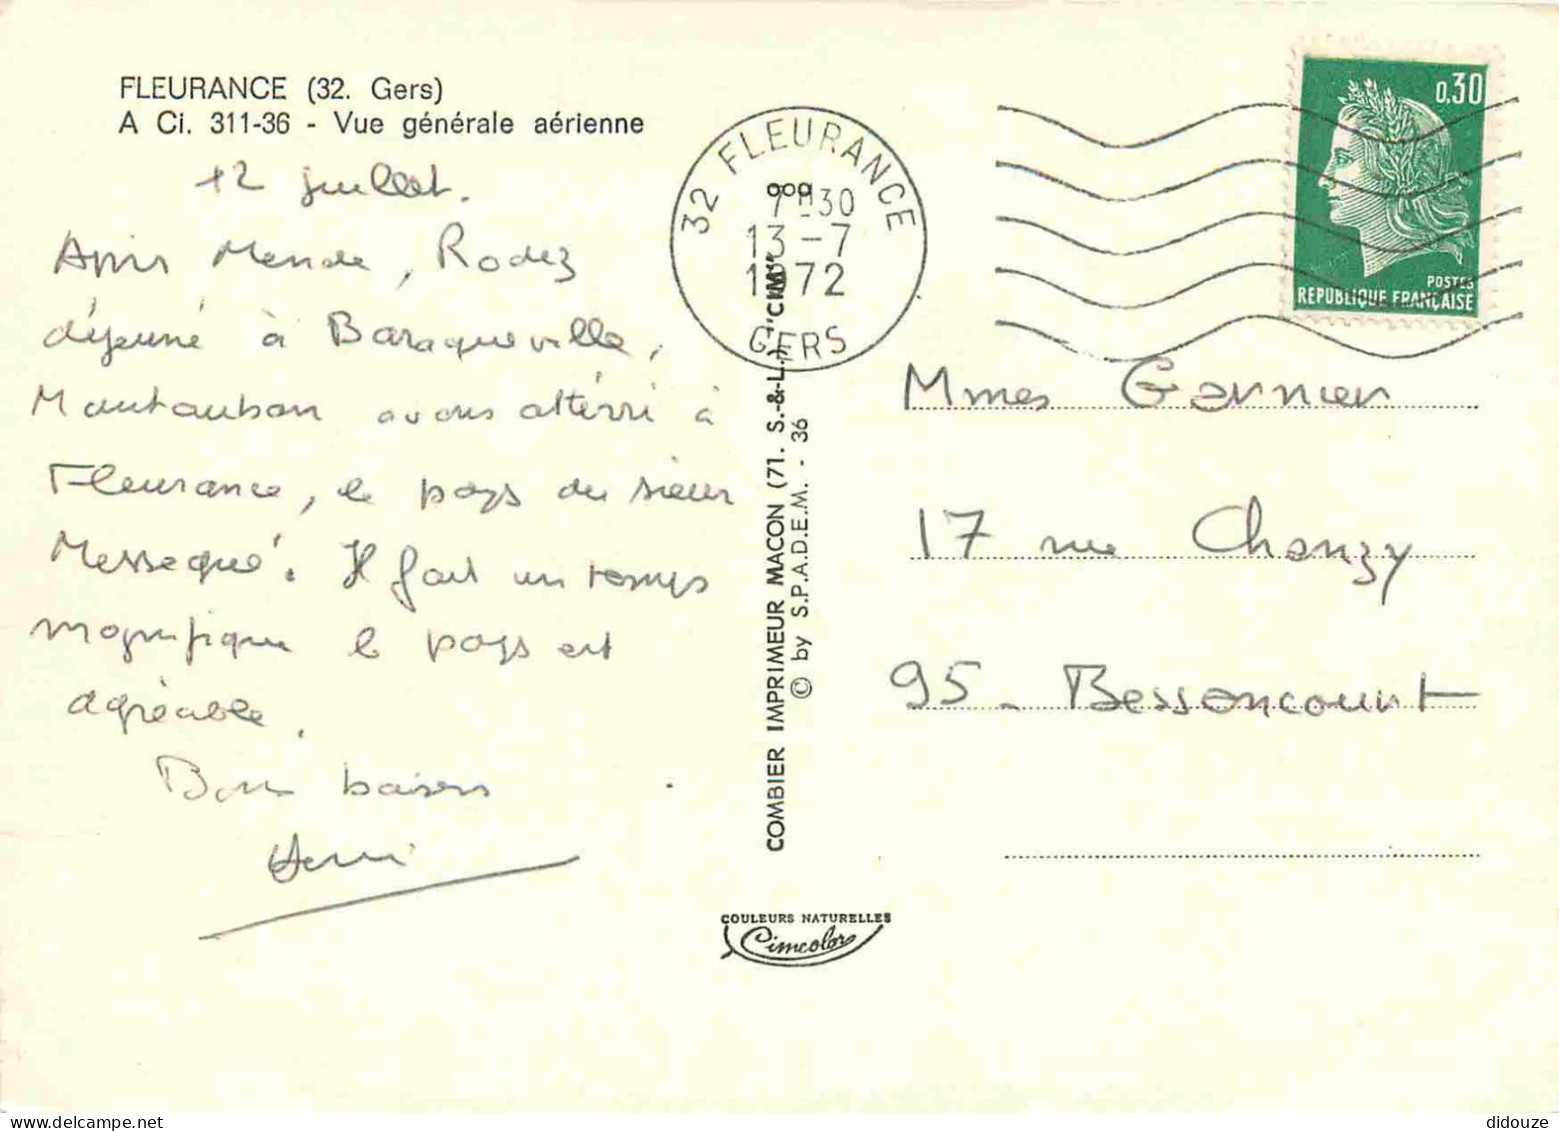 FLEURANCE (32. Gers)
A Ci. 311-36 - Vue générale aérienne
12 juillet.
Après Mende, Rodez
déjeuné à Baraqueville,
Montauban avons atterri à
Fleurance, le pays du sieur
Messegué. Il fait un temps
magnifique le pays est
agréable.
Bons baisers
Henri
32 FLEURANCE
7H30
13-7
1972
GERS
0,30
POSTES
REPUBLIQUE FRANÇAISE
Mmes Garnier
17 rue Chanzy
95 - Bessancourt
COMBIER IMPRIMEUR MACON (71. S.-&-L.) "CIM"
© by S.P.A.D.E.M. - 36
COULEURS NATURELLES
Cimcolor
didouze